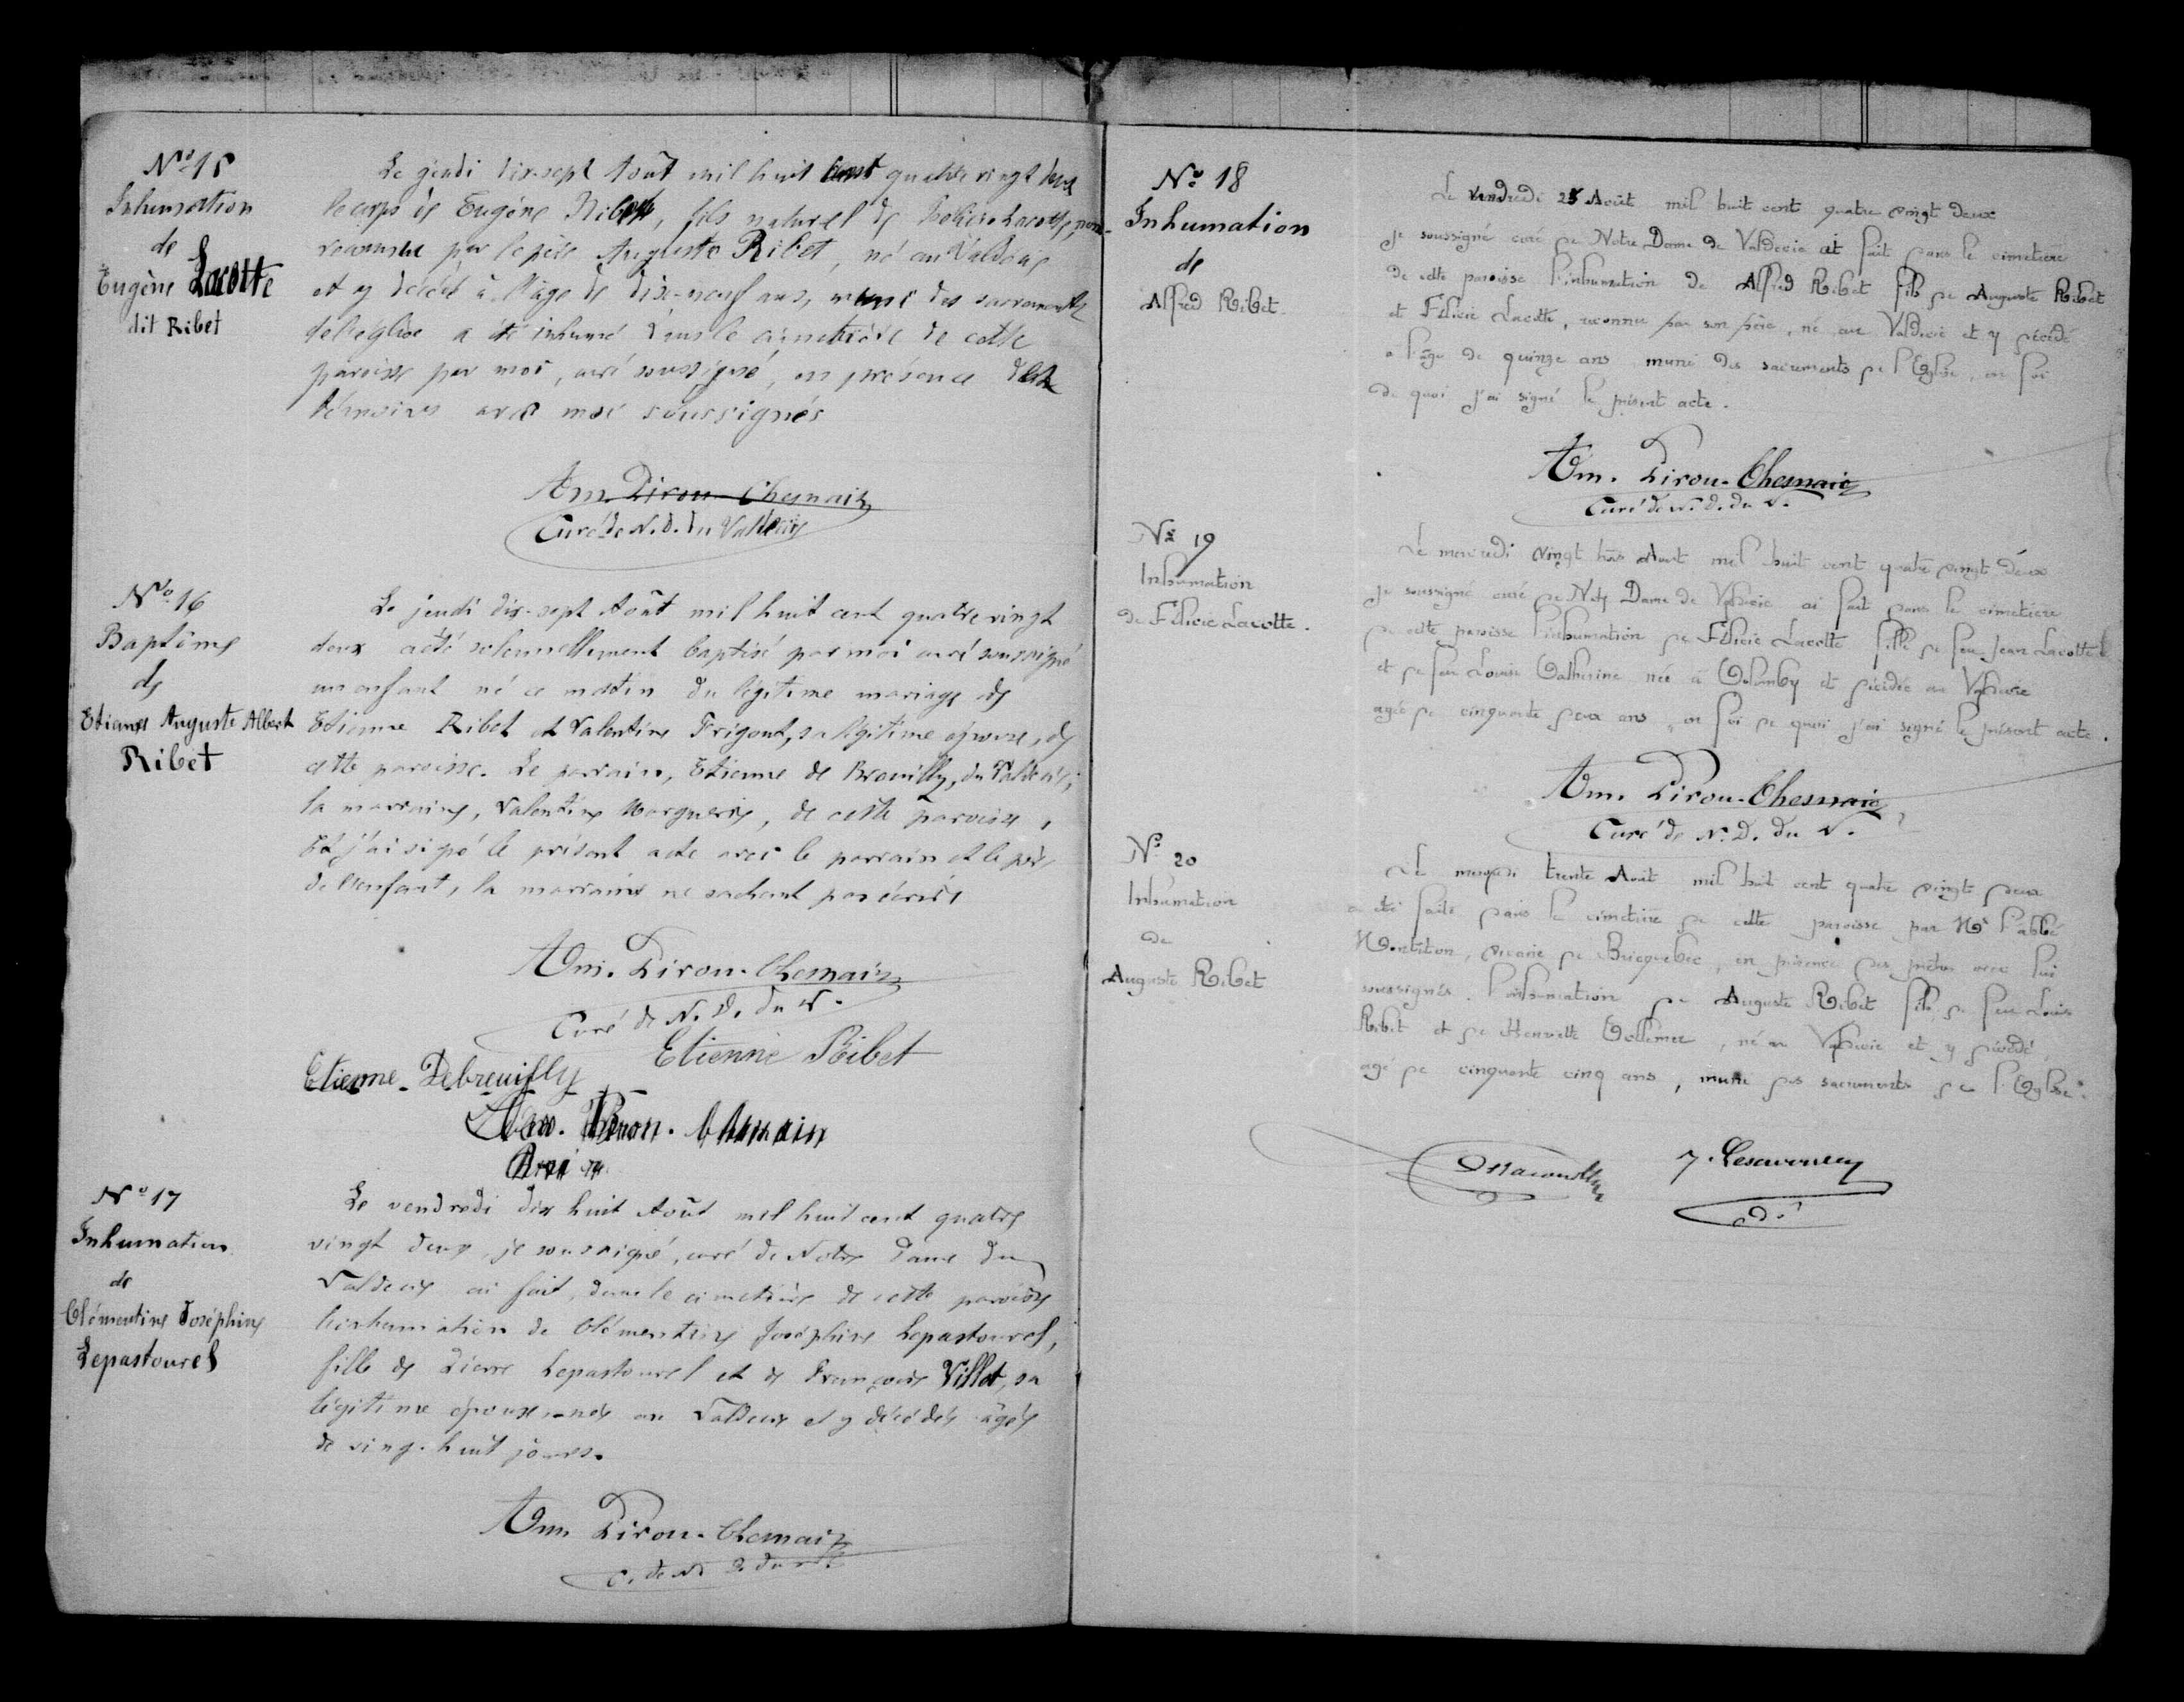 N° 15
Inhumation
de
Eugène Lacotte
dit Ribet
Le jeudi dix-sept Août mil huit cent quatre vingt deux
le corps de Eugène Ribet, fils naturel de Félicie Lacotte, non
reconnu par le père Auguste Ribet, né au Valdécie
et y décédé à l'âge de dix-neuf ans, muni des sacrements
de l'église a été inhumé dans le cimetière de cette
paroisse par moi, curé soussigné, en présence des
témoins avec moi soussignés
Am. Pirou-Chesnais
Curé de N. D. du Valdécie
N° 16
Baptême
de
Etienne Auguste Albert
Ribet
Le jeudi dix-sept Août mil huit cent quatre vingt
deux a été solennellement baptisé par moi curé soussigné
un enfant né ce matin du légitime mariage de
Etienne Ribet et Valentine Frigout, sa légitime épouse, de
cette paroisse. Le parrain, Etienne de Breuilly, du Valdécie;
la marraine, Valentine Marguerie, de cette paroisse,
Et j'ai signé le présent acte avec le parrain et le père
de l'enfant, la marraine ne sachant pas écrire
Am. Pirou-Chesnais
Curé de N. D. du V.
Etienne Ribet
Etienne Debreuilly
N° 17
Inhumation
de
Clémentine Joséphine
Lepastourel
Le vendredi dix huit Août mil huit cent quatre
vingt deux, je soussigné, curé de Notre Dame du
Valdécie ai fait, dans le cimetière de cette paroisse
l'inhumation de Clémentine Joséphine Lepastourel,
fille de Pierre Lepastourel et de Françoise Villot, sa
légitime épouse, née au Valdécie et y décédée âgée
de vingt-huit jours.
Am. Pirou-Chesnais
C. de N. D. du V.
N° 18
Inhumation
de
Alfred Ribet.
Le vendredi 25 Août mil huit cent quatre vingt deux
je soussigné curé de Notre Dame de Valdecie ai fait dans le cimetière
de cette paroisse l'inhumation de Alfred Ribet fils de Auguste Ribet
et Félicie Lacotte, reconnu par son père, né au Valdecie et y décédé
a l'âge de quinze ans muni des sacrements de l'Eglise, en foi
de quoi j'ai signé le présent acte.
Am. Pirou-Chesnais
Curé de N. D. du V.
N° 19
Inhumation
de Félicie Lacotte.
Le mercredi vingt trois Aout mil huit cent quatre vingt deux
je soussigné curé de Notre Dame de Valdecie ai fait dans le cimetière
de cette paroisse l'inhumation de Félicie Lacotte fille de feu Jean Lacotte
et de feu Louise Catherine née à Colomby et décédée au Valdecie
agée de cinquante deux ans, en foi de quoi j'ai signé le présent acte.
Am. Pirou-Chesnais
Curé de N. D. du V.
N° 20
Inhumation
de
Auguste Ribet
Le mercredi trente Aout mil huit cent quatre vingt deux
a été faite dans le cimetière de cette paroisse par Mr l'abbé
vicaire de Bricquebec, en présence des prêtres avec lui
soussignés. l'inhumation de Auguste Ribet fils de feu Louis
Ribet et de Henriette Vollemer, né au Valdecie et y décédé,
agé de cinquante cinq ans, muni des sacrements de l'Eglise.